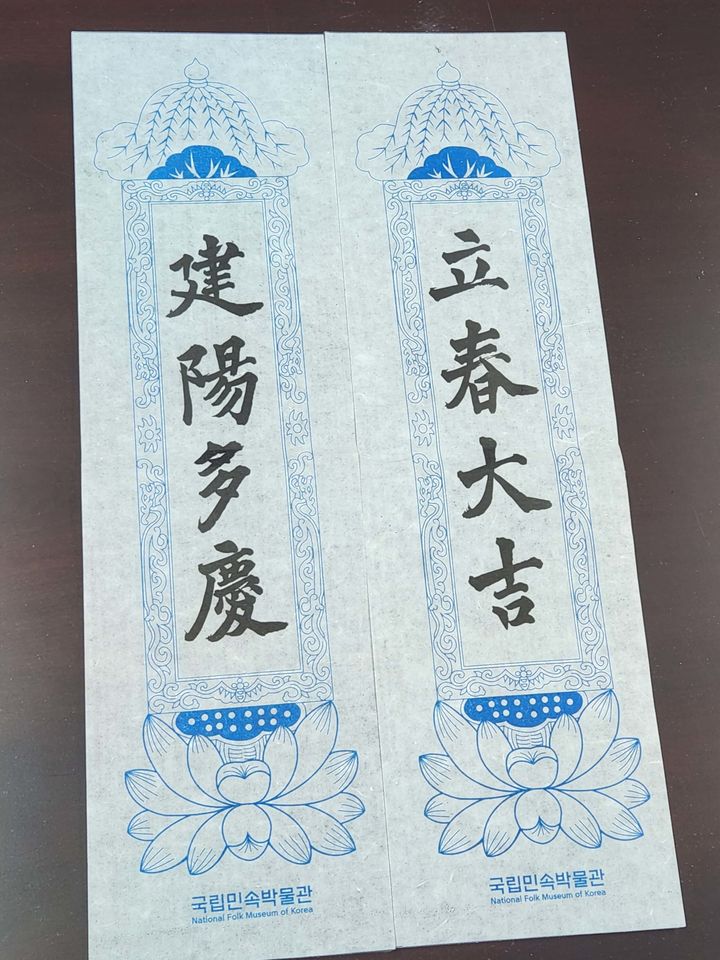 立春大吉
建陽多慶
국립민속박물관
National Folk Museum of Korea
국립민속박물관
National Folk Museum of Korea